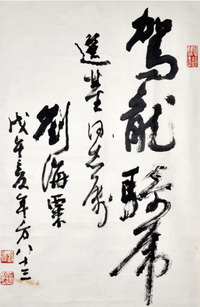 駕龍騎虎
進華同志屬
劉海粟
戊午夏年方八十三